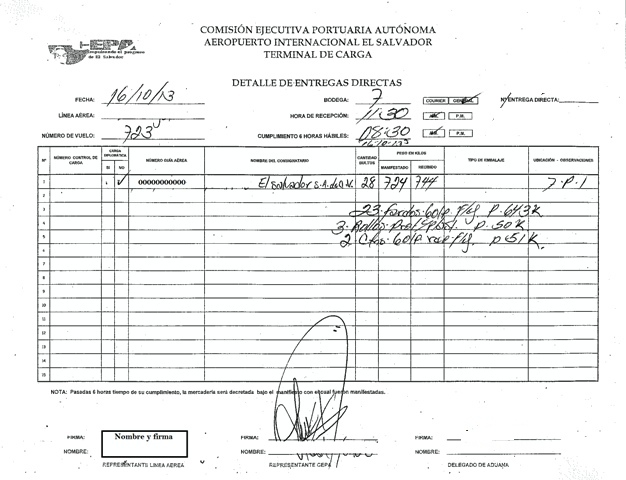 COMISIÓN EJECUTIVA PORTUARIA AUTÓNOMA
AEROPUERTO INTERNACIONAL EL SALVADOR
TERMINAL DE CARGA
CEPA
Impulsando el progreso
de El Salvador
DETALLE DE ENTREGAS DIRECTAS
FECHA: 16/10/13 BODEGA: 7 COURIER GENERAL Nº ENTREGA DIRECTA:
LÍNEA AÉREA: HORA DE RECEPCIÓN: 11:30 P.M.
NÚMERO DE VUELO: 723 CUMPLIMIENTO 6 HORAS HÁBILES: 08:30 P.M.
Nº NÚMERO CONTROL DE CARGA CARGA DIPLOMATICA SI NO NÚMERO GUÍA AÉREA NOMBRE DEL CONSIGNATARIO CANTIDAD BULTOS PESO EN KILOS MANIFESTADO RECIBIDO TIPO DE EMBALAJE UBICACIÓN - OBSERVACIONES
1 00000000000 El Salvador S.A. de C.V. 28 724 744 7-P-1
2
3 23 Fardos P. 643 K
4 3 Rollos P. 50 K
5 2 P. 51 K.
6
7
8
9
10
11
12
13
14
15
NOTA: Pasadas 6 horas tiempo de su cumplimiento, la mercadería será decretada bajo el manifiesto con el cual fueron manifestadas.
FIRMA: Nombre y firma FIRMA: FIRMA:
NOMBRE: NOMBRE: NOMBRE:
REPRESENTANTE LINEA AEREA REPRESENTANTE CEPA DELEGADO DE ADUANA